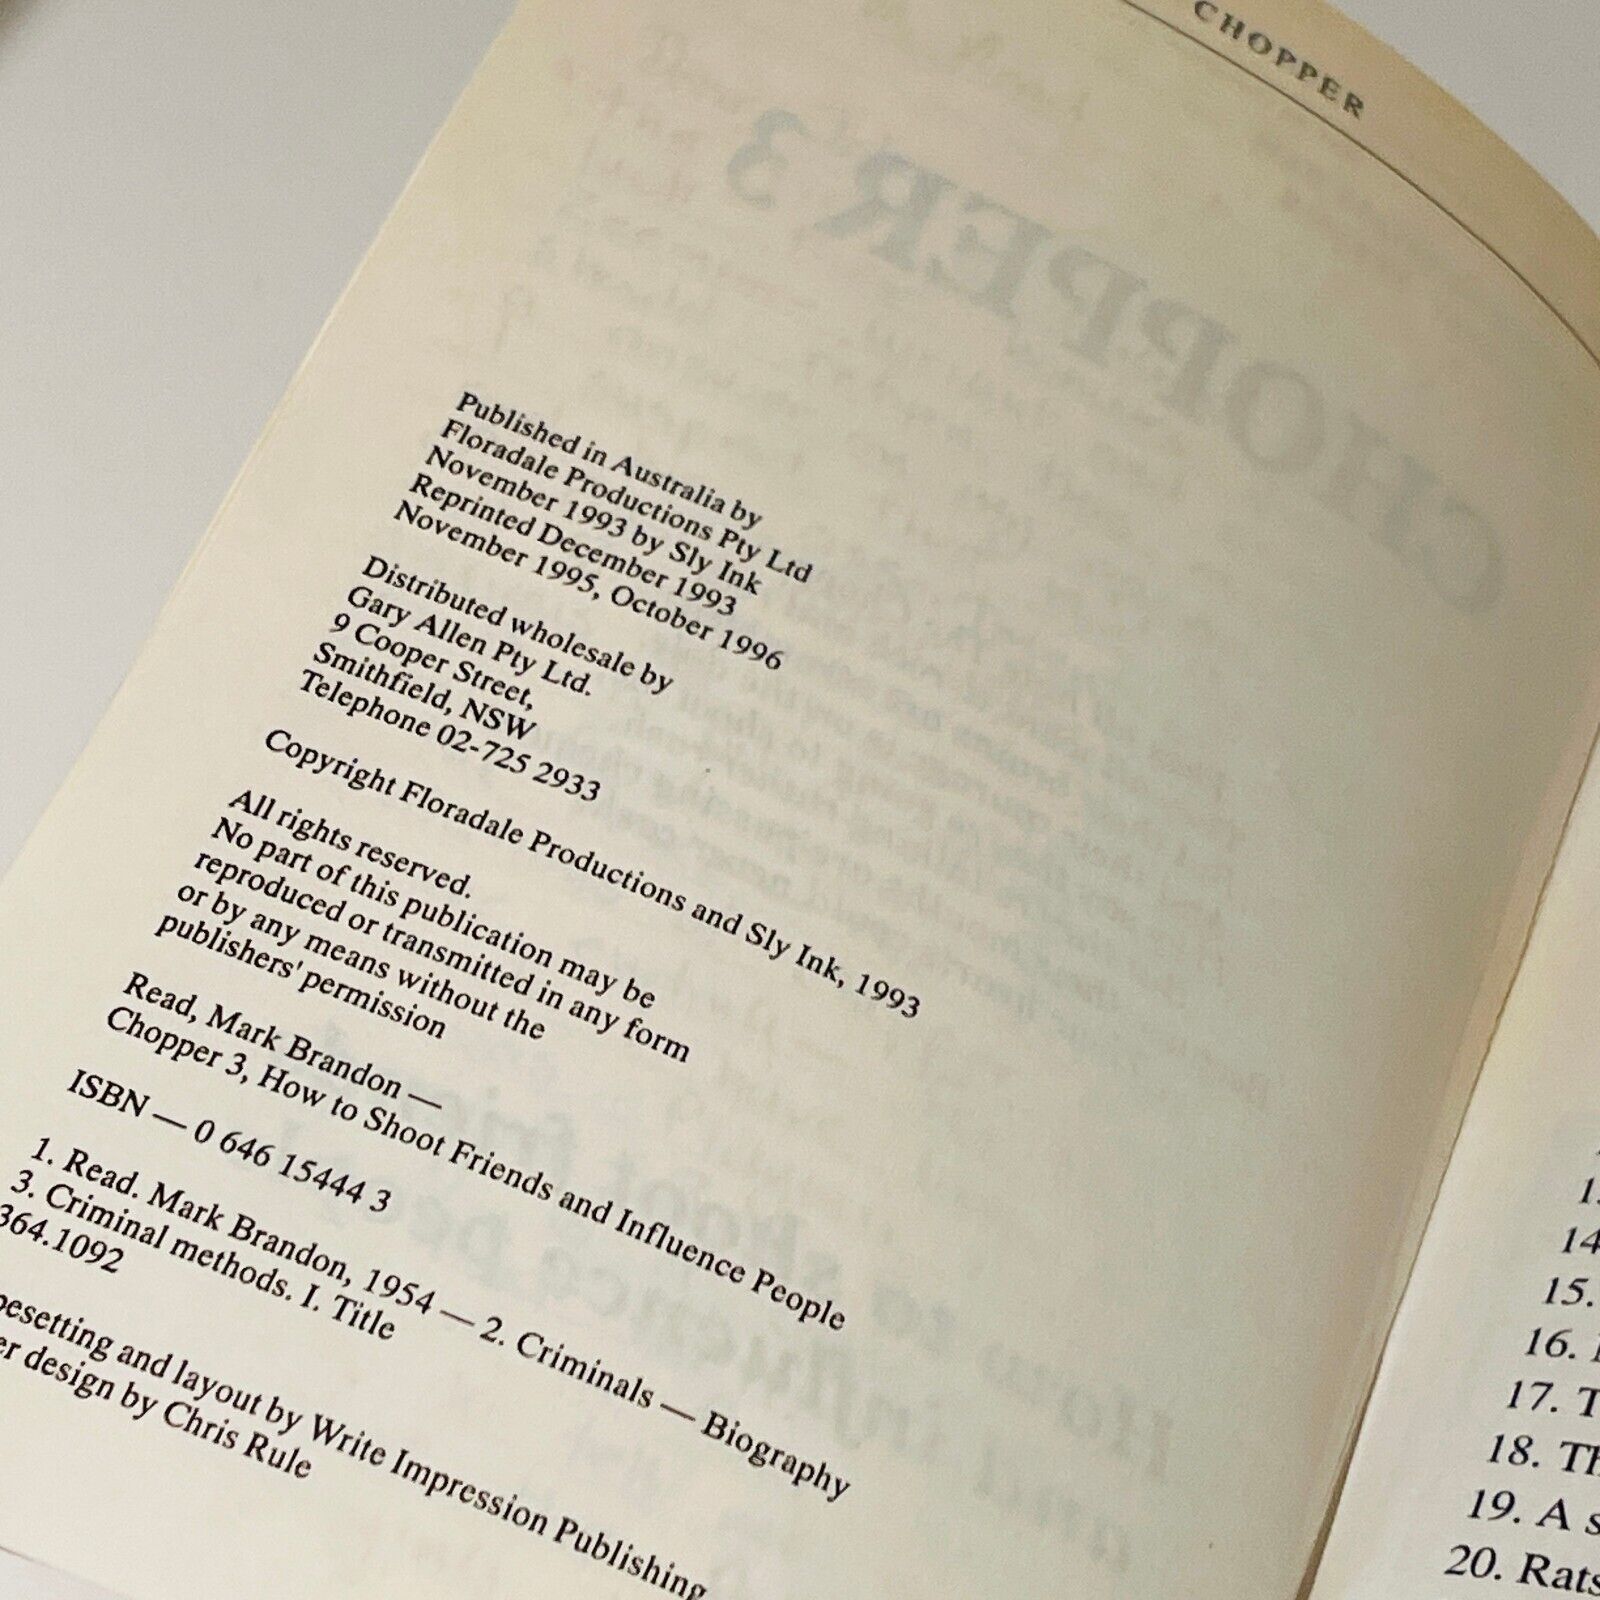 CHOPPER
CHOPPER 3
Published in Australia by
Floradale Productions Pty Ltd
November 1993 by Sly Ink
Reprinted December 1993
November 1995, October 1996
Distributed wholesale by
Gary Allen Pty Ltd.
9 Cooper Street,
Smithfield, NSW
Telephone 02-725 2933
Copyright Floradale Productions and Sly Ink, 1993
All rights reserved.
No part of this publication may be
reproduced or transmitted in any form
or by any means without the
publishers' permission
Read, Mark Brandon —
Chopper 3, How to Shoot Friends and Influence People
ISBN — 0 646 15444 3
1. Read. Mark Brandon, 1954 — 2. Criminals — Biography
3. Criminal methods. I. Title
364.1092
pesetting and layout by Write Impression Publishing
er design by Chris Rule
14
15.
16.
17. T
18. Th
19. A s
20. Rats